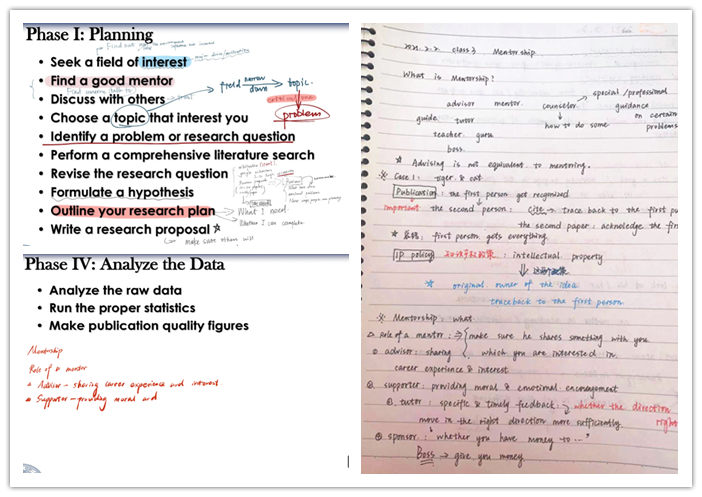 Phase I: Planning
• Seek a field of interest
• Find a good mentor
• Discuss with others
field narrow down → topic.
• Choose a topic that interest you
problem
• Identify a problem or research question
• Perform a comprehensive literature search
• Revise the research question
• Formulate a hypothesis
• Outline your research plan
What I need
Whether I can complete
• Write a research proposal ☆
Can make sure others will
Phase IV: Analyze the Data
• Analyze the raw data
• Run the proper statistics
• Make publication quality figures
Mentorship
Role of a mentor
Advisor - sharing career experience and interest
Supporter - providing moral and
2021.2.2. class 3 Mentorship
What is Mentorship?
special/professional
advisor mentor. counselor. guidance
guide. tutor on certain
how to do some problems
teacher guru
boss.
☆ Advising is not equivalent to mentoring.
※ Case 1: tiger & cat
Publication: the first person get recognized
important the second person: cite → trace back to the first
the second paper: acknoledge the
first person gets everything.
IP policy : intellectual property
☆ original owner of the idea
traceback to the first person
※ Mentorship: what
Role of a mentor: make sure he shares something with you
advisor: sharing which you are interested in.
career experience & interest
supporter: providing moral & emotional encouragement
tutor: specific & timely feedback: whether the direction
move in the right direction more sufficiently. right
sponsor: whether you have money to ..."
Boss → give you money